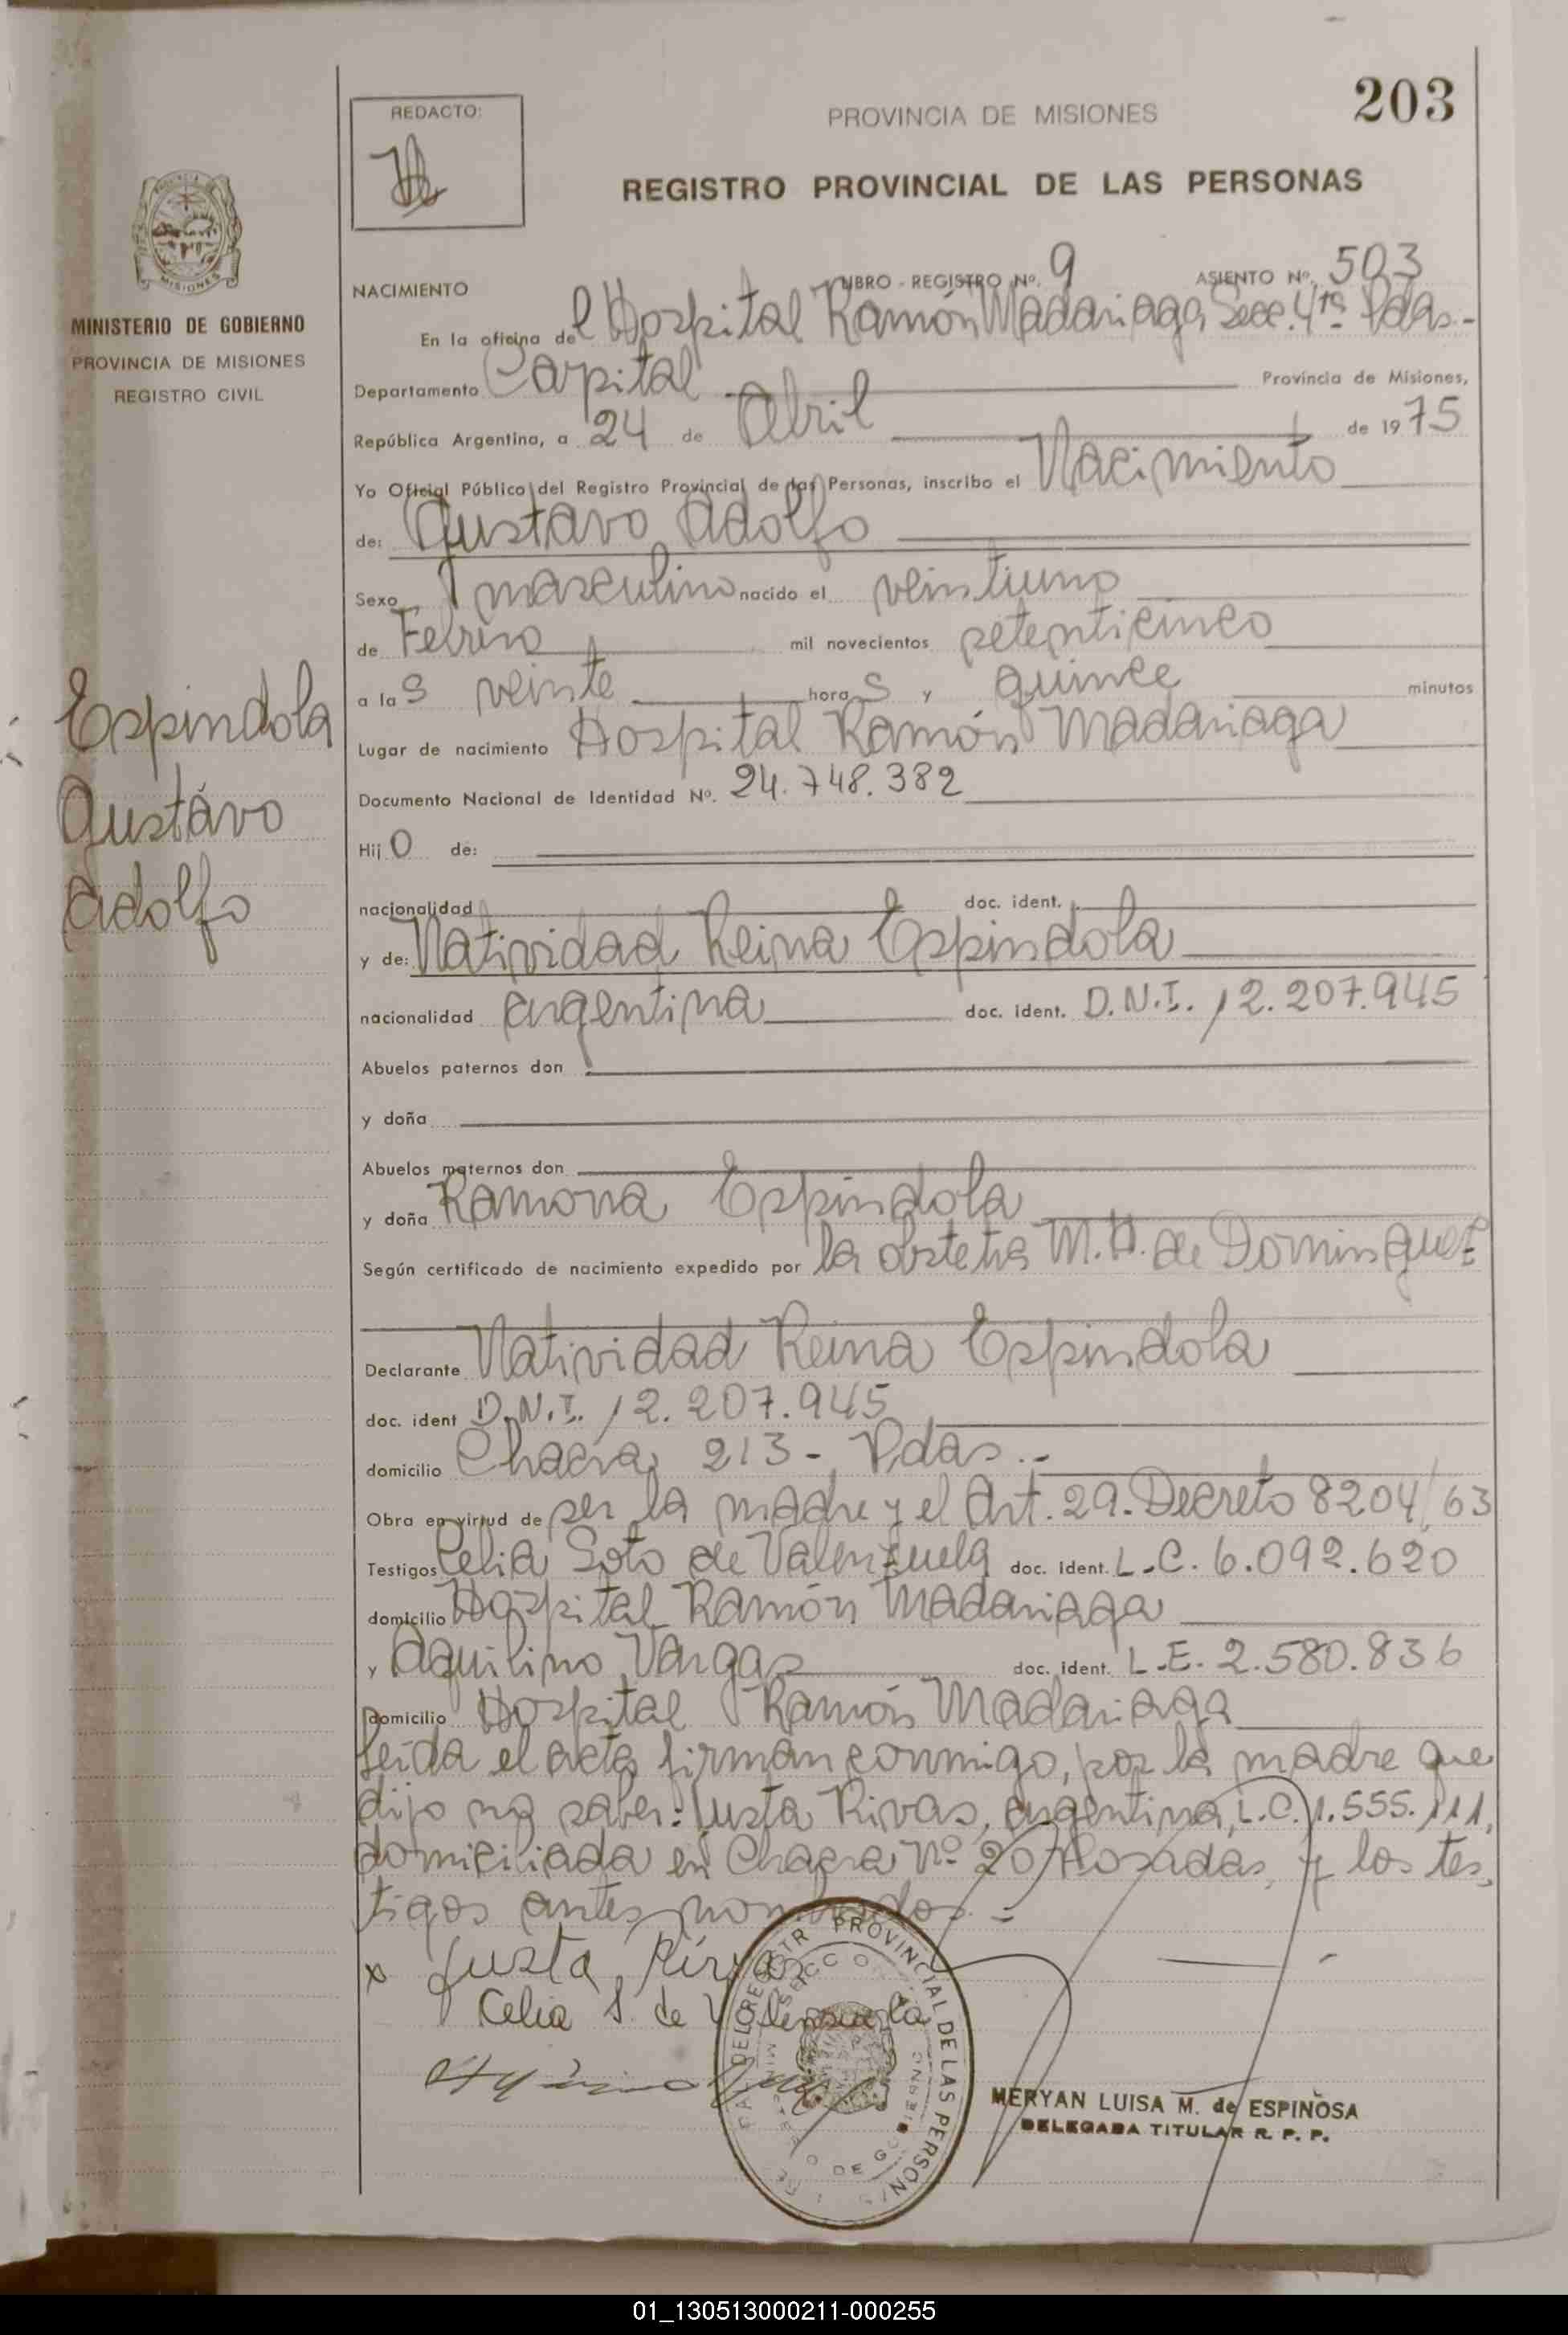 203
REDACTO:
PROVINCIA DE MISIONES
REGISTRO PROVINCIAL DE LAS PERSONAS
MINISTERIO DE GOBIERNO
PROVINCIA DE MISIONES
REGISTRO CIVIL
Espindola
Gustavo
Adolfo
NACIMIENTO LIBRO - REGISTRO Nº. 9 ASIENTO Nº. 503
En la oficina del Hospital Ramón Madariaga, Secc. 4ta Pdas.-
Departamento Capital Provincia de Misiones,
República Argentina, a 24 de Abril de 1975
Yo Oficial Público del Registro Provincial de las Personas, inscribo el Nacimiento
de: Gustavo Adolfo
Sexo masculino nacido el veintiuno
de Febrero mil novecientos setenticinco
a las veinte horas y quince minutos
Lugar de nacimiento Hospital Ramón Madariaga
Documento Nacional de Identidad Nº. 24.748.382
Hijo de:
nacionalidad doc. ident.
y de: Natividad Reina Espindola
nacionalidad argentina doc. ident. D.N.I. 12.207.945
Abuelos paternos don
y doña
Abuelos maternos don
y doña Ramona Espindola
Según certificado de nacimiento expedido por la obstetra M.H. de Dominguez
Declarante Natividad Reina Espindola
doc. ident D.N.I. 12.207.945
domicilio Chacra 213- Pdas.-
Obra en virtud de ser la madre y el Art. 29. Decreto 8204/63
Testigos Celia Soto de Valenzuela doc. ident. L.C. 6.092.620
domicilio Hospital Ramón Madariaga
y Aquilino Vargas doc. ident. L.E. 2.580.836
domicilio Hospital Ramón Madariaga
Leida el acta firman conmigo, por la madre que
dijo no saber: Justa Rivas, argentina, L.C. 1.555.111,
domiciliada en Chacra Nº 207 Posadas, y los tes-
tigos antes nombrados.=
x Justa Rivas
Celia S. de Valensuela
PROVINCIAL DE LAS PERSONAS
MERYAN LUISA M. de ESPINOSA
DELEGADA TITULAR R. P. P.
01_130513000211-000255